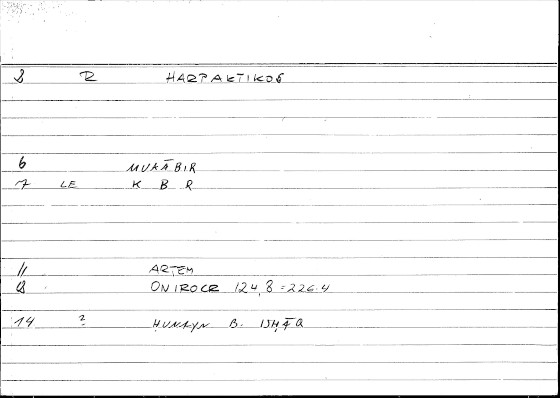 8 R HARPAKTIKOS
6 MUKĀBIR
7 LE K B R
11 ARṬEM
8 ONIROCR 124,8 = 226.4
14 ? ḤUNAYN B. ISḤĀQ